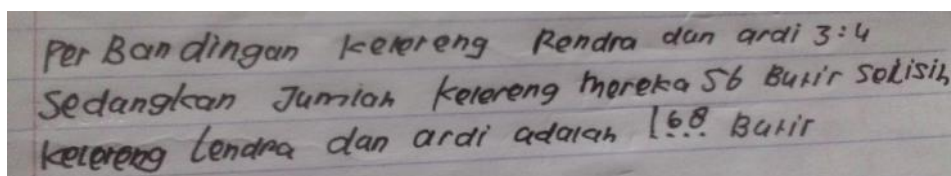 Per Bandingan kelereng Rendra dan ardi 3:4
Sedangkan Jumlah kelereng mereka 56 Butir selisih
kelereng lendra dan ardi adalah 168 Butir